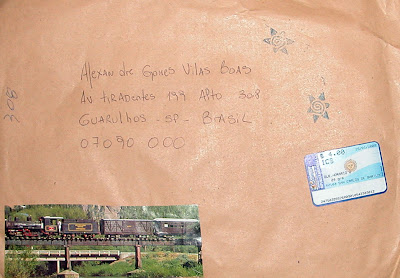 Alexandre Gomes Vilas Boas
Av tiRAdentes 199 Alto 308
GUARUlhos - SP - BRASIL
07090 000
308
4.00